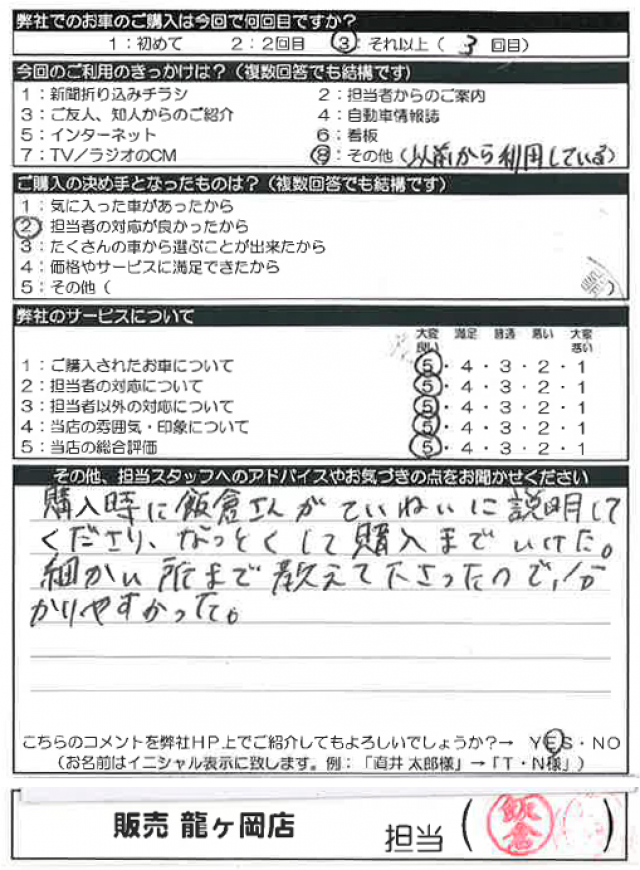 弊社でのお車のご購入は今回で何回目ですか？
1：初めて 2：2回目 3：それ以上（ 3 回目）
今回のご利用のきっかけは？（複数回答でも結構です）
1：新聞折り込みチラシ 2：担当者からのご案内
3：ご友人、知人からのご紹介 4：自動車情報誌
5：インターネット 6：看板
7：TV／ラジオのCM 8：その他（以前から利用している）
ご購入の決め手となったものは？（複数回答でも結構です）
1：気に入った車があったから
2：担当者の対応が良かったから
3：たくさんの車から選ぶことが出来たから
4：価格やサービスに満足できたから
5：その他（ ）
弊社のサービスについて
大変良い 満足 普通 悪い 大変悪い
1：ご購入されたお車について 5・4・3・2・1
2：担当者の対応について 5・4・3・2・1
3：担当者以外の対応について 5・4・3・2・1
4：当店の雰囲気・印象について 5・4・3・2・1
5：当店の総合評価 5・4・3・2・1
その他、担当スタッフへのアドバイスやお気づきの点をお聞かせください
購入時に飯倉さんがていねいに説明して
くださり、なっとくして購入までいけた。
細かい所まで教えて下さったので、分
かりやすかった。
こちらのコメントを弊社HP上でご紹介してもよろしいでしょうか？→ YES・NO
（お名前はイニシャル表示に致します。例：「直井 太郎様」→「T・N様」）
販売 龍ヶ岡店 担当（飯倉 ）